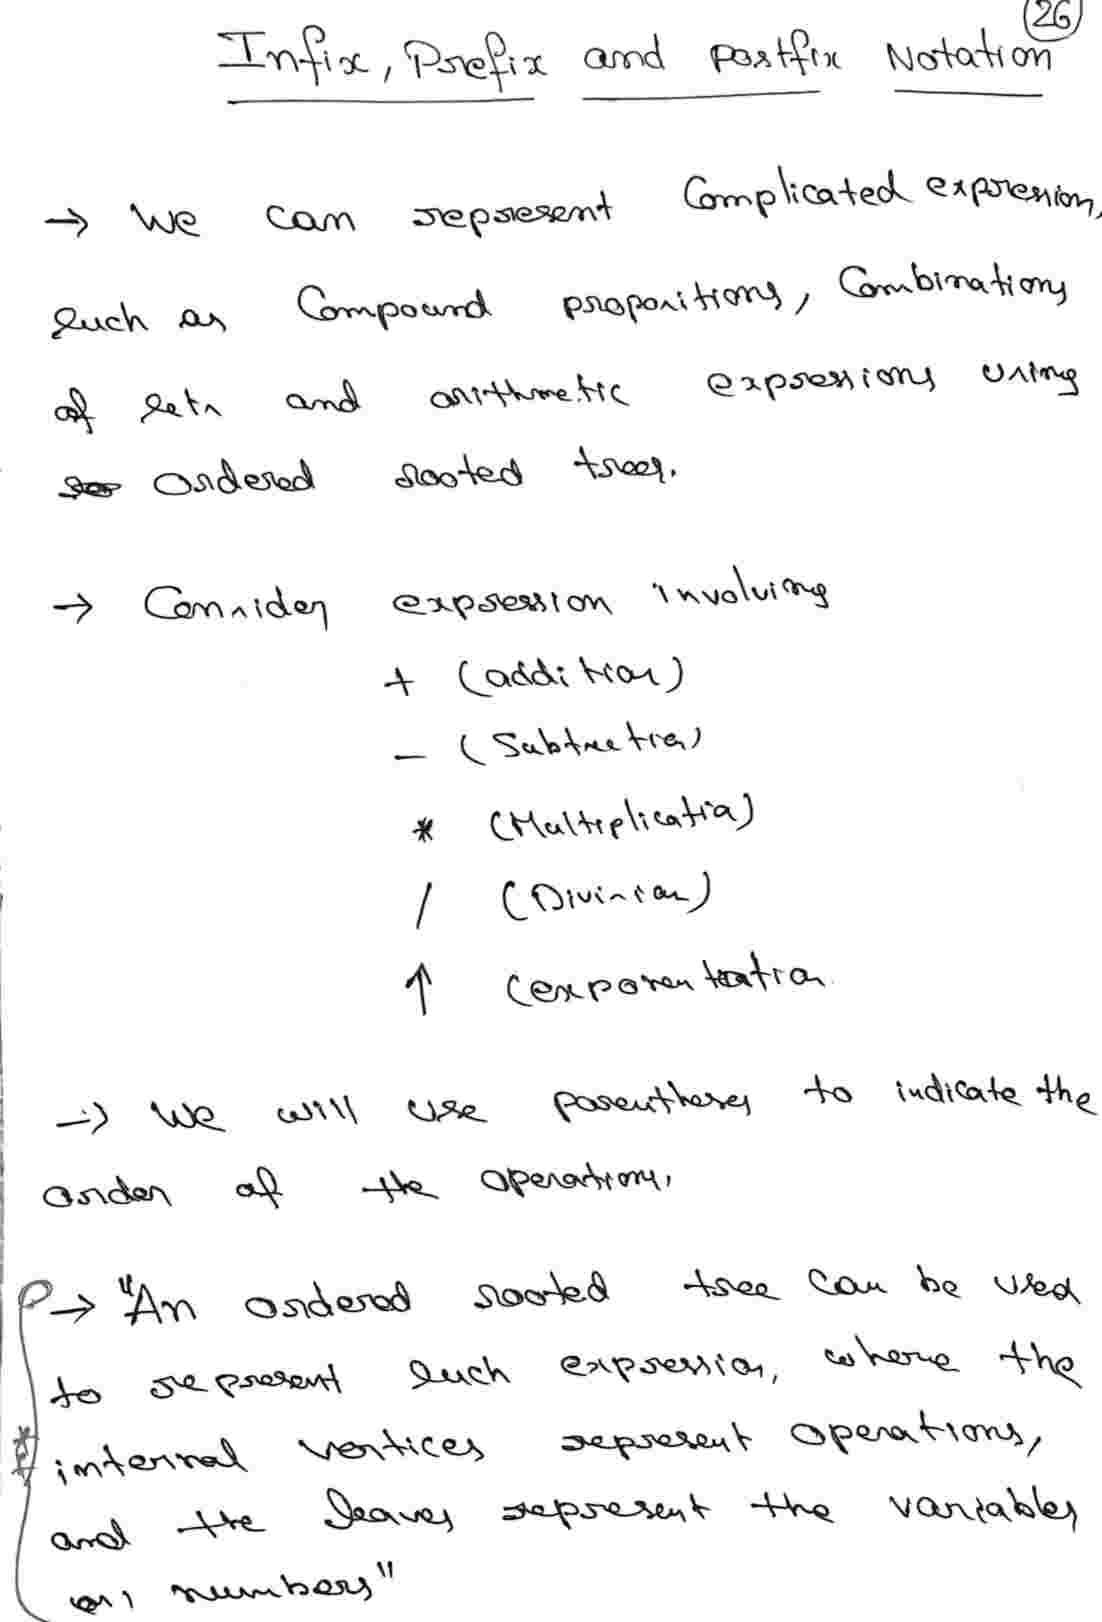 26
Infix, Prefix and postfix Notation
→ We can represent Complicated expression,
such as Compound propositions, Combinations
of sets and arithmetic expressions using
ordered rooted trees.
→ Consider expression involving
+ (addition)
- (Subtraction)
* (Multiplication)
/ (Division)
↑ (exponentation
→ We will use parentheses to indicate the
order of the operations.
→ "An ordered rooted tree can be used
to represent such expression, where the
* internal vertices represent operations,
and the leaves represent the variables
or numbers"